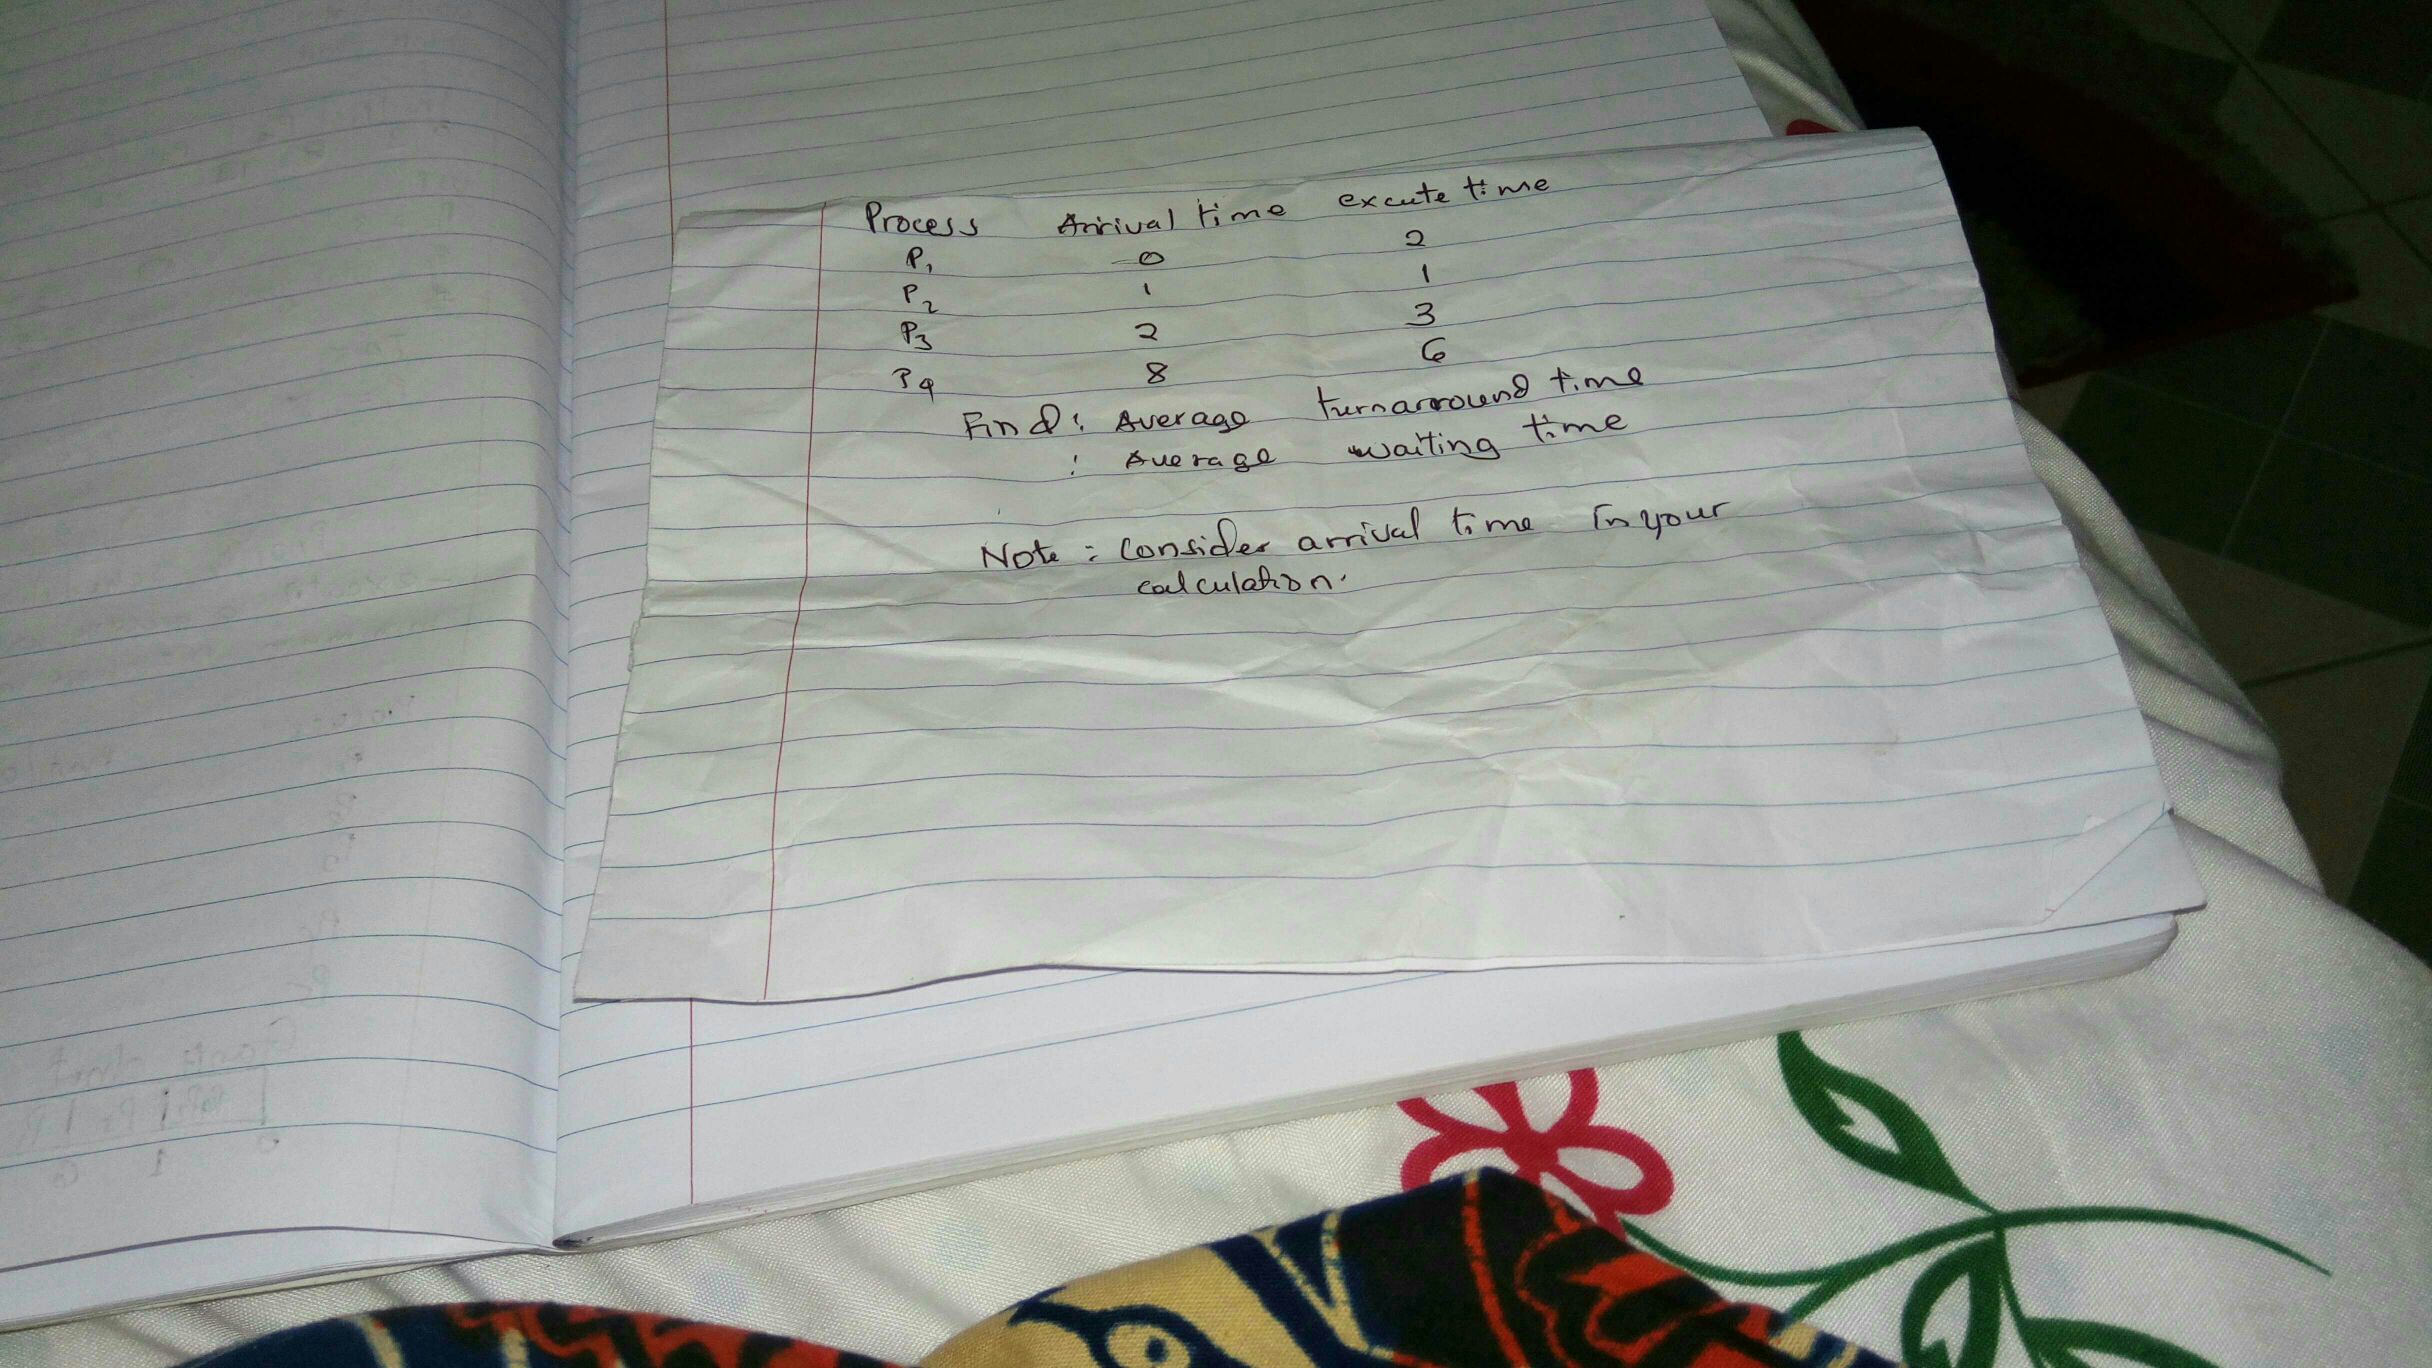 Process Arrival time excute time
P1 0 2
P2 1 1
P3 2 3
P4 8 6
Find: Average turnarround time
: Average waiting time
Note: Consider arrival time in your
calculation.